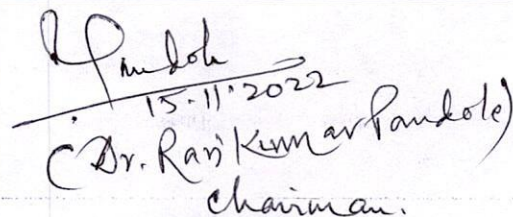 Pandole
15.11.2022
(Dr. Ravi Kumar Pandole)
Chairman.